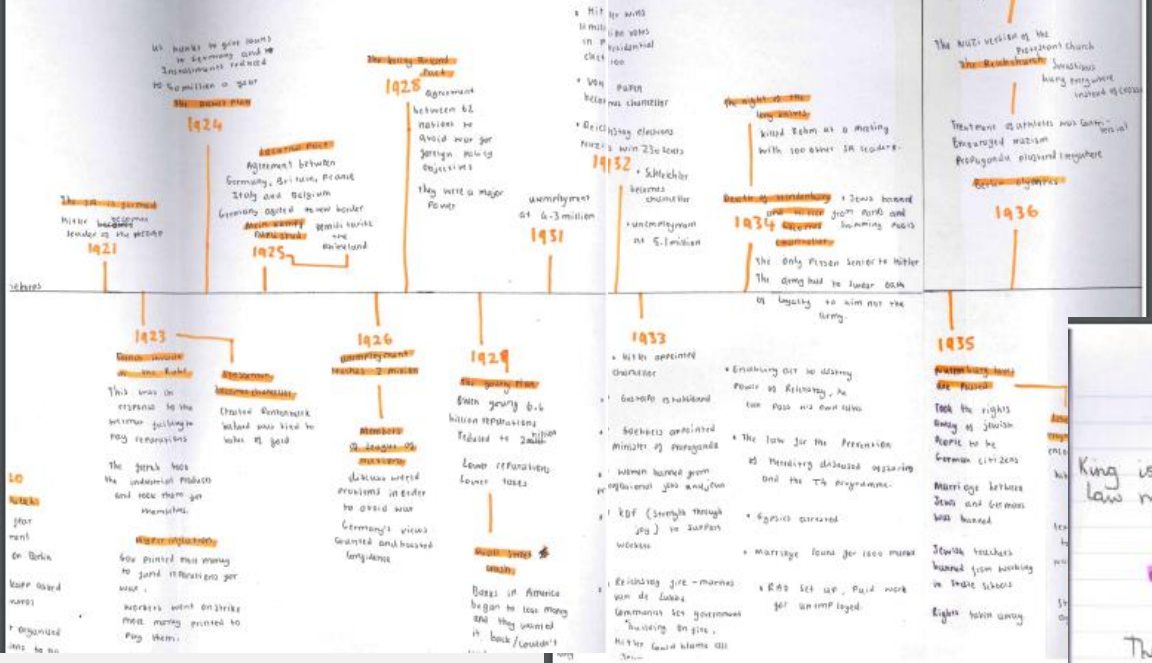 US banks to give loans
to Germany and
Instalments reduced
to 50 million a year
The Dawes Plan
1924
The SA is formed
Hitler becomes
leader of the NSDAP
1921
Locarno Pact
Agreement between
Germany, Britain, France
Italy and Belgium
Germany agreed to new border
Mein Kampf
Published
demilitarise
the
Rhineland
1925
Pact
1928
Agreement
between 62
nations to
avoid war for
foreign policy
objectives
They were a major
Power
unemployment
at 4.3 million
1931
Hitler wins
million votes
in presidential
election
Von Papen
becomes chancellor
Reichstag elections
Nazis win 230 seats
1932
Schleicher
becomes
chancellor
unemployment
at 5.1 million
The night of the
long knives
killed Rohm at a meeting
with 100 other SA leaders.
Death of Hindenburg
and Hitler
becomes
chancellor
Jews banned
from Parks and
Swimming Pools
1934
The only Person Senior to Hitler
The army had to swear oath
of loyalty to him not the
army.
The Nazi version of the
Protestant church
The Reich church
Swastikas
hung everywhere
instead of crosses
Treatment of athletes was controversial
Encouraged nazism
Propaganda plastered everywhere
Berlin Olympics
1936
1923
French invade
in the Ruhr
This was in
response to the
weimar failing to
Pay reparations
The french took
the industrial products
and took them for
themselves.
Hyper inflation
Gov printed more money
to fund reparations for
war.
Workers went on strike
more money printed to
Pay them.
Stresemann
becomes chancellor
Created Rentenmark
value of gold
1926
unemployment
reaches 2 million
Members
of league of
nations
discuss world
problems in order
to avoid war
Germany's views
counted and boosted
confidence
1929
The young Plan
Owen young 6.6
billion reparations
reduced to 2 billion
Lower reparations
Lower taxes
Wall Street
crash
Banks in America
began to lose money
and they wanted
it back / couldn't
1933
Hitler appointed
chancellor
Gestapo established
Goebbels appointed
minister of Propaganda
women banned from
professional jobs
KDF (Strength through
joy) to support
workers
Reichstag fire - marinus
van de Lubbe
Communist set government
building on fire.
Hitler could blame all
Enabling act to destroy
Power of Reichstag, he
can pass his own laws
The law for the Prevention
of Hereditary diseased offspring
and the T4 programme.
Gypsies arrested
Marriage loans for 1000 marks
RAD set up, Paid work
for unemployed.
1935
Nuremburg laws
are Passed
Took the rights
away of Jewish
People to be
German citizens
Marriage between
Jews and Germans
was banned
Jewish teachers
banned from working
in State Schools
Rights taken away
year
on Berlin
organised
King is
Law